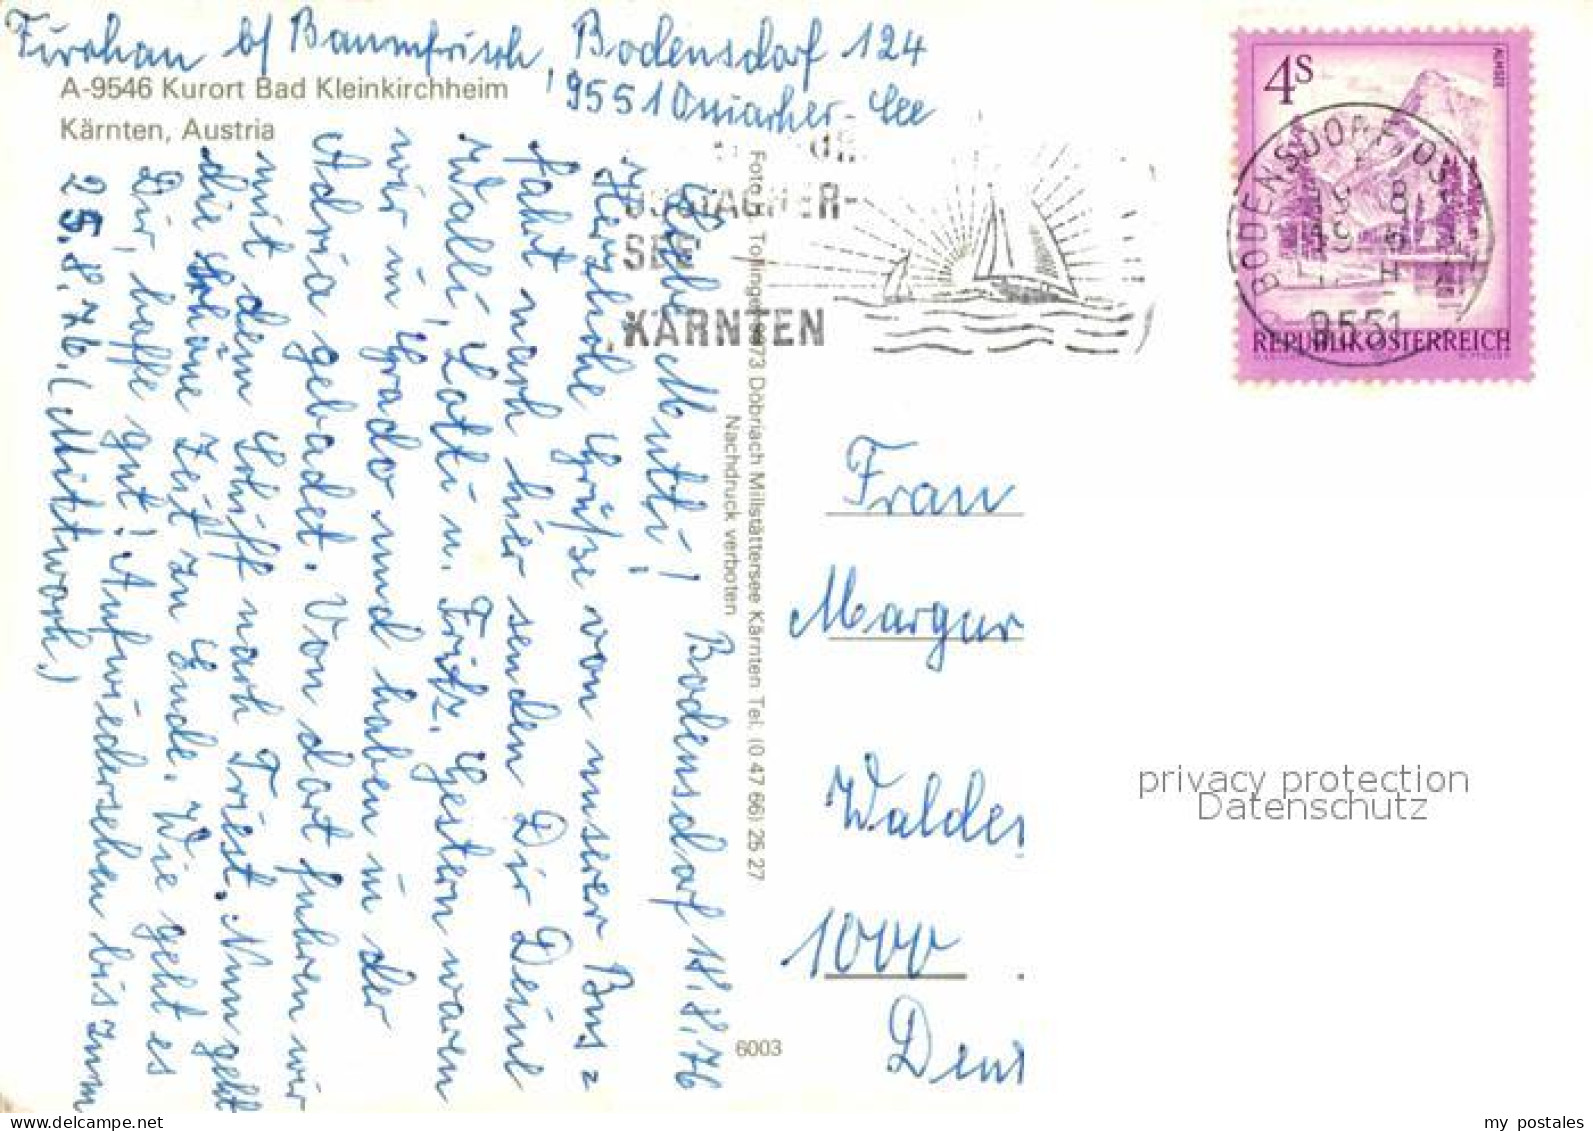 Firchan b/ Baumfrisch, Bodensdorf 124
9551 Ossiacher-See
A-9546 Kurort Bad Kleinkirchheim
Kärnten, Austria
Bodensdorf 18.8.76
Liebe Mutti!
Herzliche Grüße von unserer Bus=
fahrt nach hier senden Dir Deine
Walli, Lotti u. Fritz. Gestern waren
wir in Grado und haben in der
Adria gebadet. Von dort fuhren wir
mit dem Schiff nach Triest. Nun geht
die schöne Zeit zu Ende. Wie geht es
Dir, hoffe gut! Aufwiedersehen bis zum
25.8.76. (Mittwoch.)
Foto Tollinger 9873 Döbriach Millstättersee Kärnten Tel. (0 47 66) 25 27
Nachdruck verboten
6003
OSSIACHER-
SEE
KÄRNTEN
4S
ALMSEE
BODENSDORF, OSS
9551
REPUBLIK ÖSTERREICH
Frau
Margur
Walde
1000
Deu
privacy protection
Datenschutz
my_postales